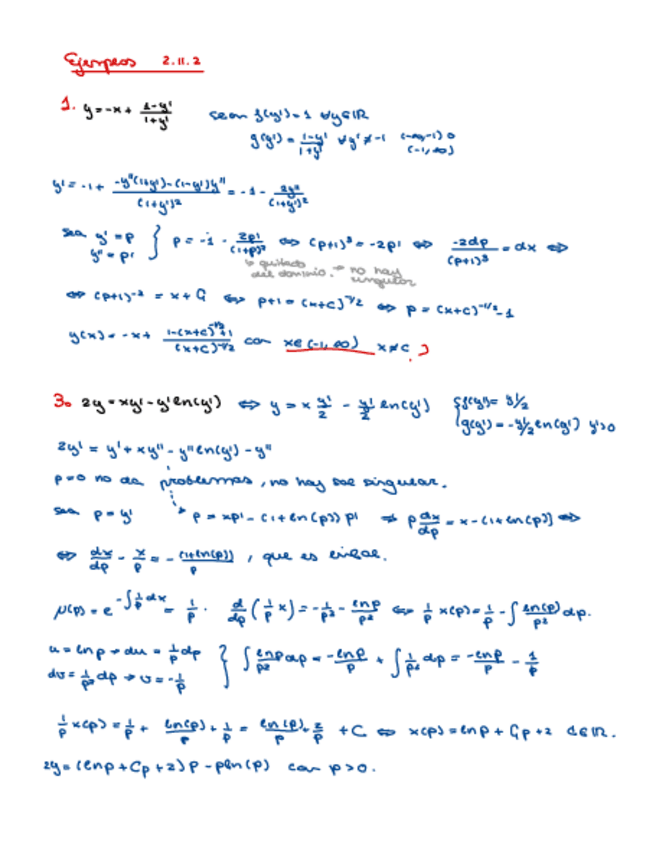 Ejemplos 2.11.2
1. y = -x + (1-y')/(1+y') sean f(y') = 1 ∀y∈ℝ
g(y') = (1-y')/(1+y') ∀y' ≠ -1 (-∞,-1) o
(-1,∞)
y' = -1 + (-y''(1+y')-(1-y')y'')/(1+y')² = -1 - 2y''/(1+y')²
sea y' = p
y'' = p' } p = -1 - 2p'/(1+p)² ⇔ (p+1)³ = -2p' ⇔ -2dp/(p+1)³ = dx ⇔
↳ quitado del dominio. → no hay singular
⇔ (p+1)⁻² = x + C ⇔ p+1 = (x+C)^(-1/2) ⇔ p = (x+C)^(-1/2) - 1
y(x) = -x + (1-(x+C)^(-1/2)+1)/(x+C)^(-1/2) con x∈(-1,∞) x≠C ?
3. 2y = xy' - y' ln(y') ⇔ y = x y'/2 - y'/2 ln(y') { f(y') = y'/2
g(y') = -y'/2 ln(y') y'>0
2y' = y' + xy'' - y'' ln(y') - y''
p=0 no da problemas, no hay sol singular.
sea p = y' p = xp' - (1+ln(p)) p' ⇒ p dx/dp = x - (1+ln(p)) ⇔
⇔ dx/dp - x/p = - (1+ln(p))/p, que es lineal.
μ(p) = e^(-∫1/p dx) = 1/p. d/dp (1/p x) = -1/p² - ln p/p² ⇔ 1/p x(p) = 1/p - ∫ ln(p)/p² dp.
u = ln p → du = 1/p dp
dv = 1/p² dp → v = -1/p } ∫ ln p/p² dp = -ln p/p + ∫ 1/p² dp = -ln p/p - 1/p
1/p x(p) = 1/p + ln(p)/p + 1/p = ln(p)/p + 2/p + C ⇔ x(p) = ln p + Cp + 2 C∈ℝ.
2y = (ln p + Cp + 2) p - p ln(p) con p > 0.